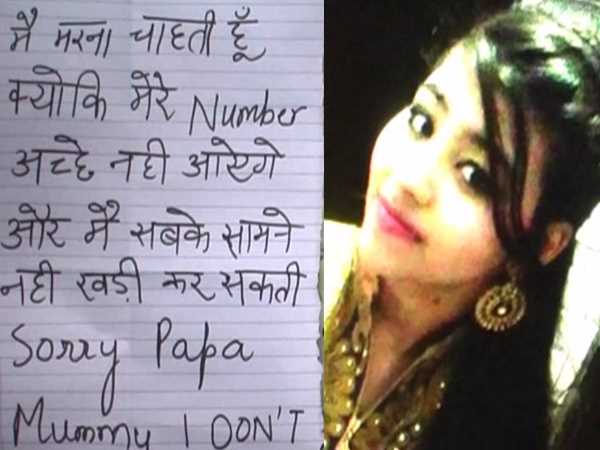 मै मरना चाहती हूँ
क्योकि मेरे Number
अच्छे नही आऐगे
और मै सबके सामने
नही खड़ी कर सकती
Sorry Papa
Mummy I DON'T